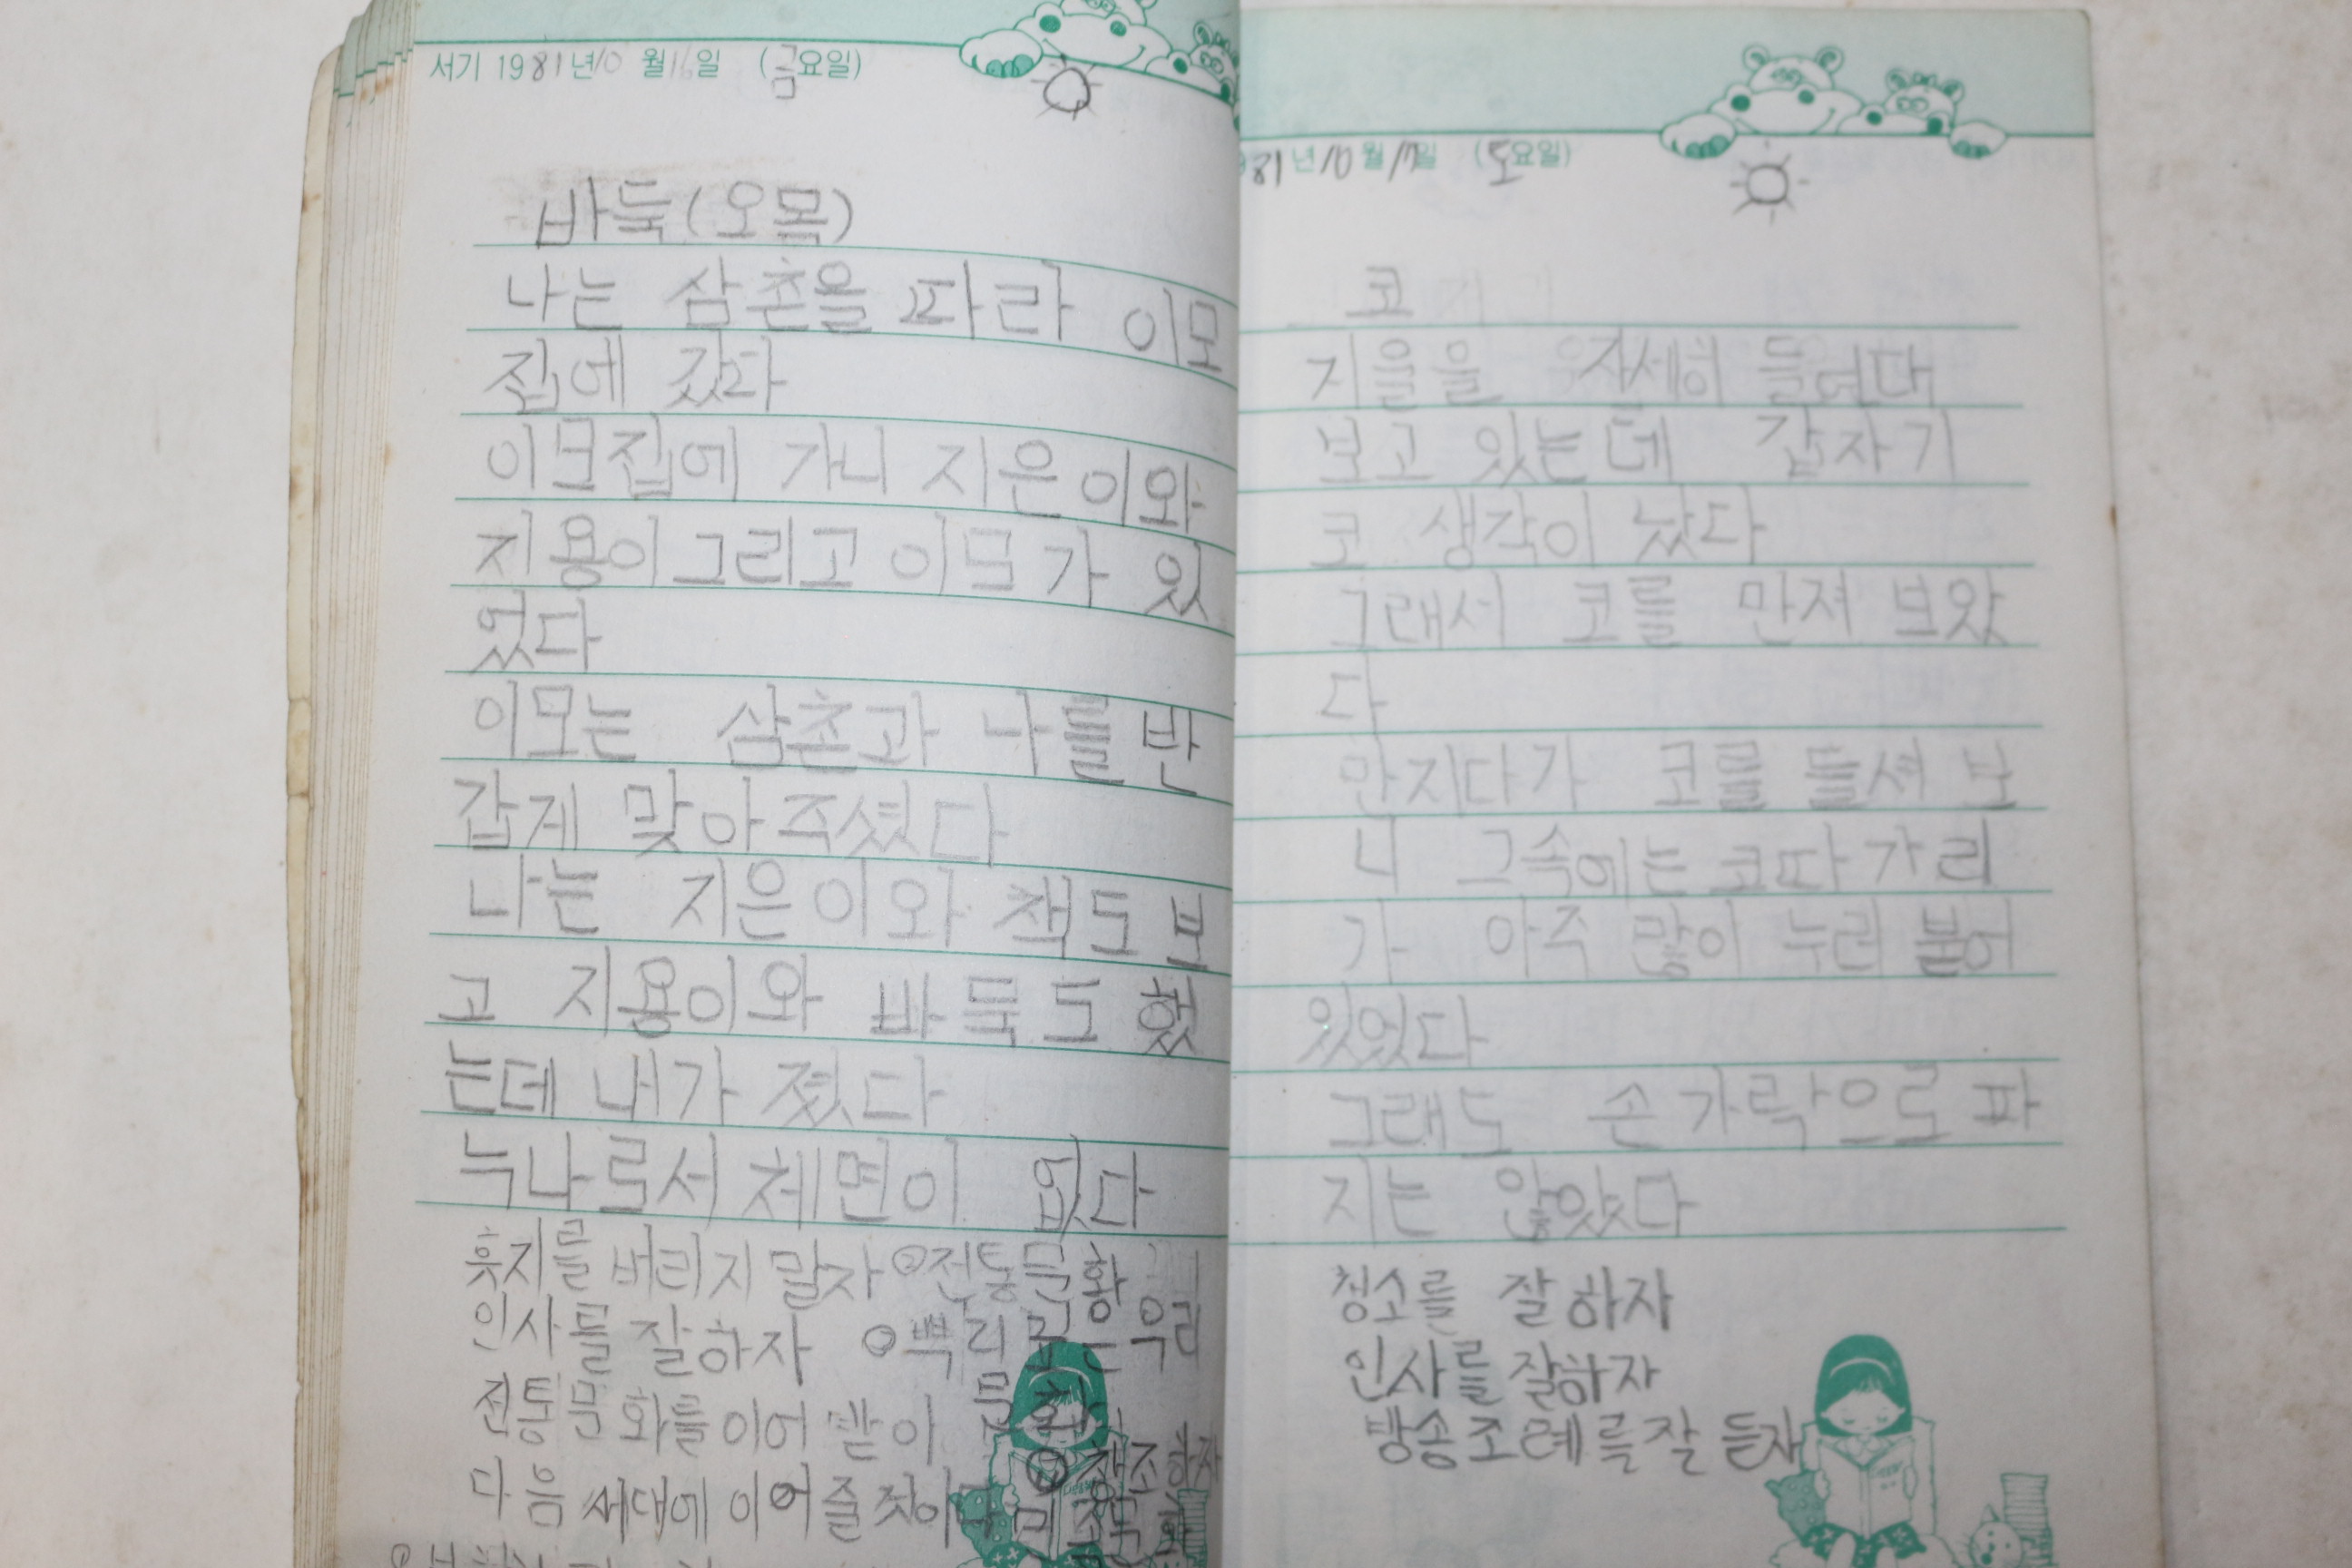 서기 1981년 10월 16일 (금요일)
바둑(오목)
나는 삼촌을 따라 이모
집에 갔다
이모집에 가니 지은이와
지용이그리고 이모가 있
었다
이모는 삼촌과 나를 반
갑게 맞아주셨다
나는 지은이와 책도 보
고 지용이와 바둑도 했
는데 내가 졌다
누나로서 체면이 없다
휴지를 버리지 말자 ⊙전통문황
인사를 잘하자 ⊙뿌리 우리
전통문화를 이어 받아
다음 세대에 이어 줄 것이다
81년 10월 17일 (토요일)
코
지을을 자세히 들여다
보고 있는데 갑자기
코 생각이 났다
그래서 코를 만져 보았
다
만지다가 코를 들셔 보
니 그속에는 코따가리
가 아주 많이 누러 붙어
있었다
그래도 손가락으로 파
지는 않았다
청소를 잘하자
인사를 잘하자
방송조례를 잘 듣자